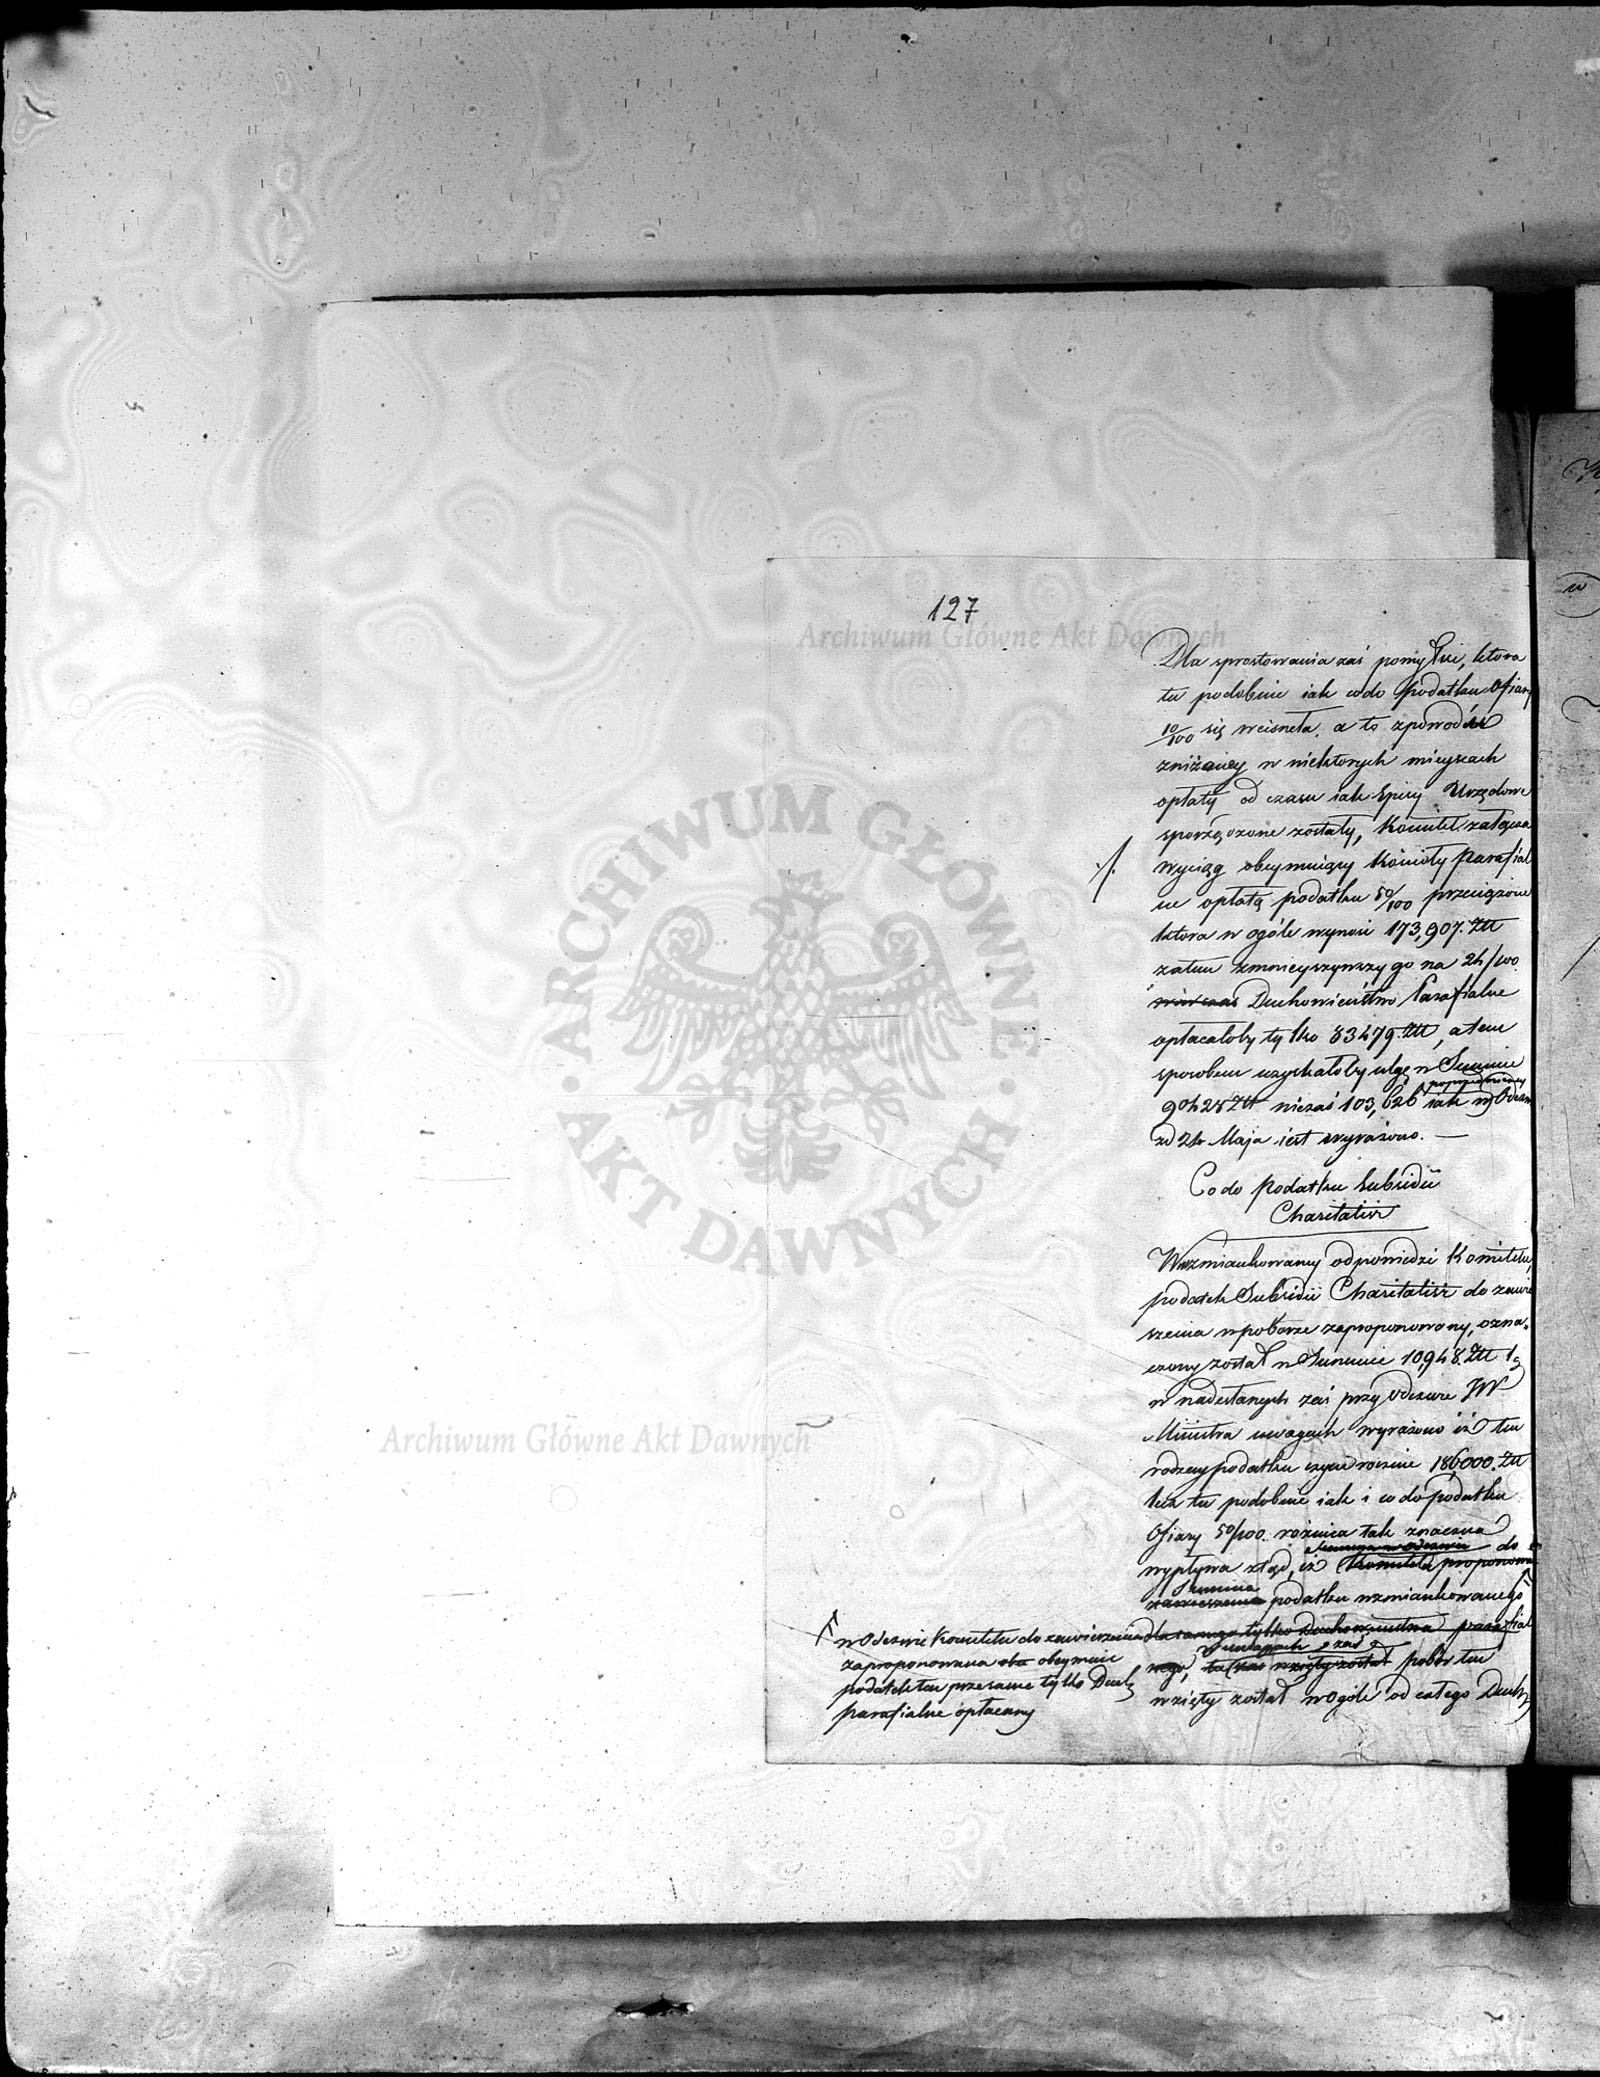 127
Dla sprostowania zaś pomyłki, która
tu podobnie iak codo podatku Ofiary
10/100 się wcisnęła, a to zpowodu
zniżoney w niektorych mieyscach
opłaty od czasu iak Spisy Urzędowe
sporządzone zostały, Komitet załącza
./. wyciąg obeymuiący kościoły Parafial
ne opłatą podatku 50/100 przeciążone
ktora w ogóle wynosi 173,907. Złł
zatem zmnieyszywszy go na 24/100.
wówczas Duchowieństwo Parafialne
opłacałoby tylko 83479. Złł, a tem
sposobem uzyskałoby ulgę w Summie
90428 Złł nie zaś 103,626 iak w Odezw
poprzedniczey
zd 24 Maja iest wyrażono. —
Co do podatku Subsidii
Charitativi
W wzmiankowaney odpowiedzi Komitetu,
podatek Subsidii Charitativi do zmnie
szenia w poborze zaproponowany, ozna-
czony został w Summie 10,948. Złł 1g
w nadesłanych zaś przy Odezwie JW
Ministra uwagach wyrażono iż ten
rodzay podatku czyni rocznie 186000. Złł
lecz tu podobnie iak i co do podatku
Ofiary 50/100. rożnica tak znaczna
wypływa ztąd, iż Komitetu proponowa
do
Summa
podatku wzmiankowanego
dla samego tylko Duchowieństwa parafial
w uwagach zaś
nego, ta zaś wzięty został pobór ten
wzięty został wogóle od całego Duch
w Odezwie Komitetu do zmnieyszenia
zaproponowana oba obeymuie
podatek ten przezsame tylko Duch
parafialne opłacany
Archiwum Główne Akt Dawnych
ARCHIWUM GŁÓWNE
AKT DAWNYCH
Archiwum Główne Akt Dawnych